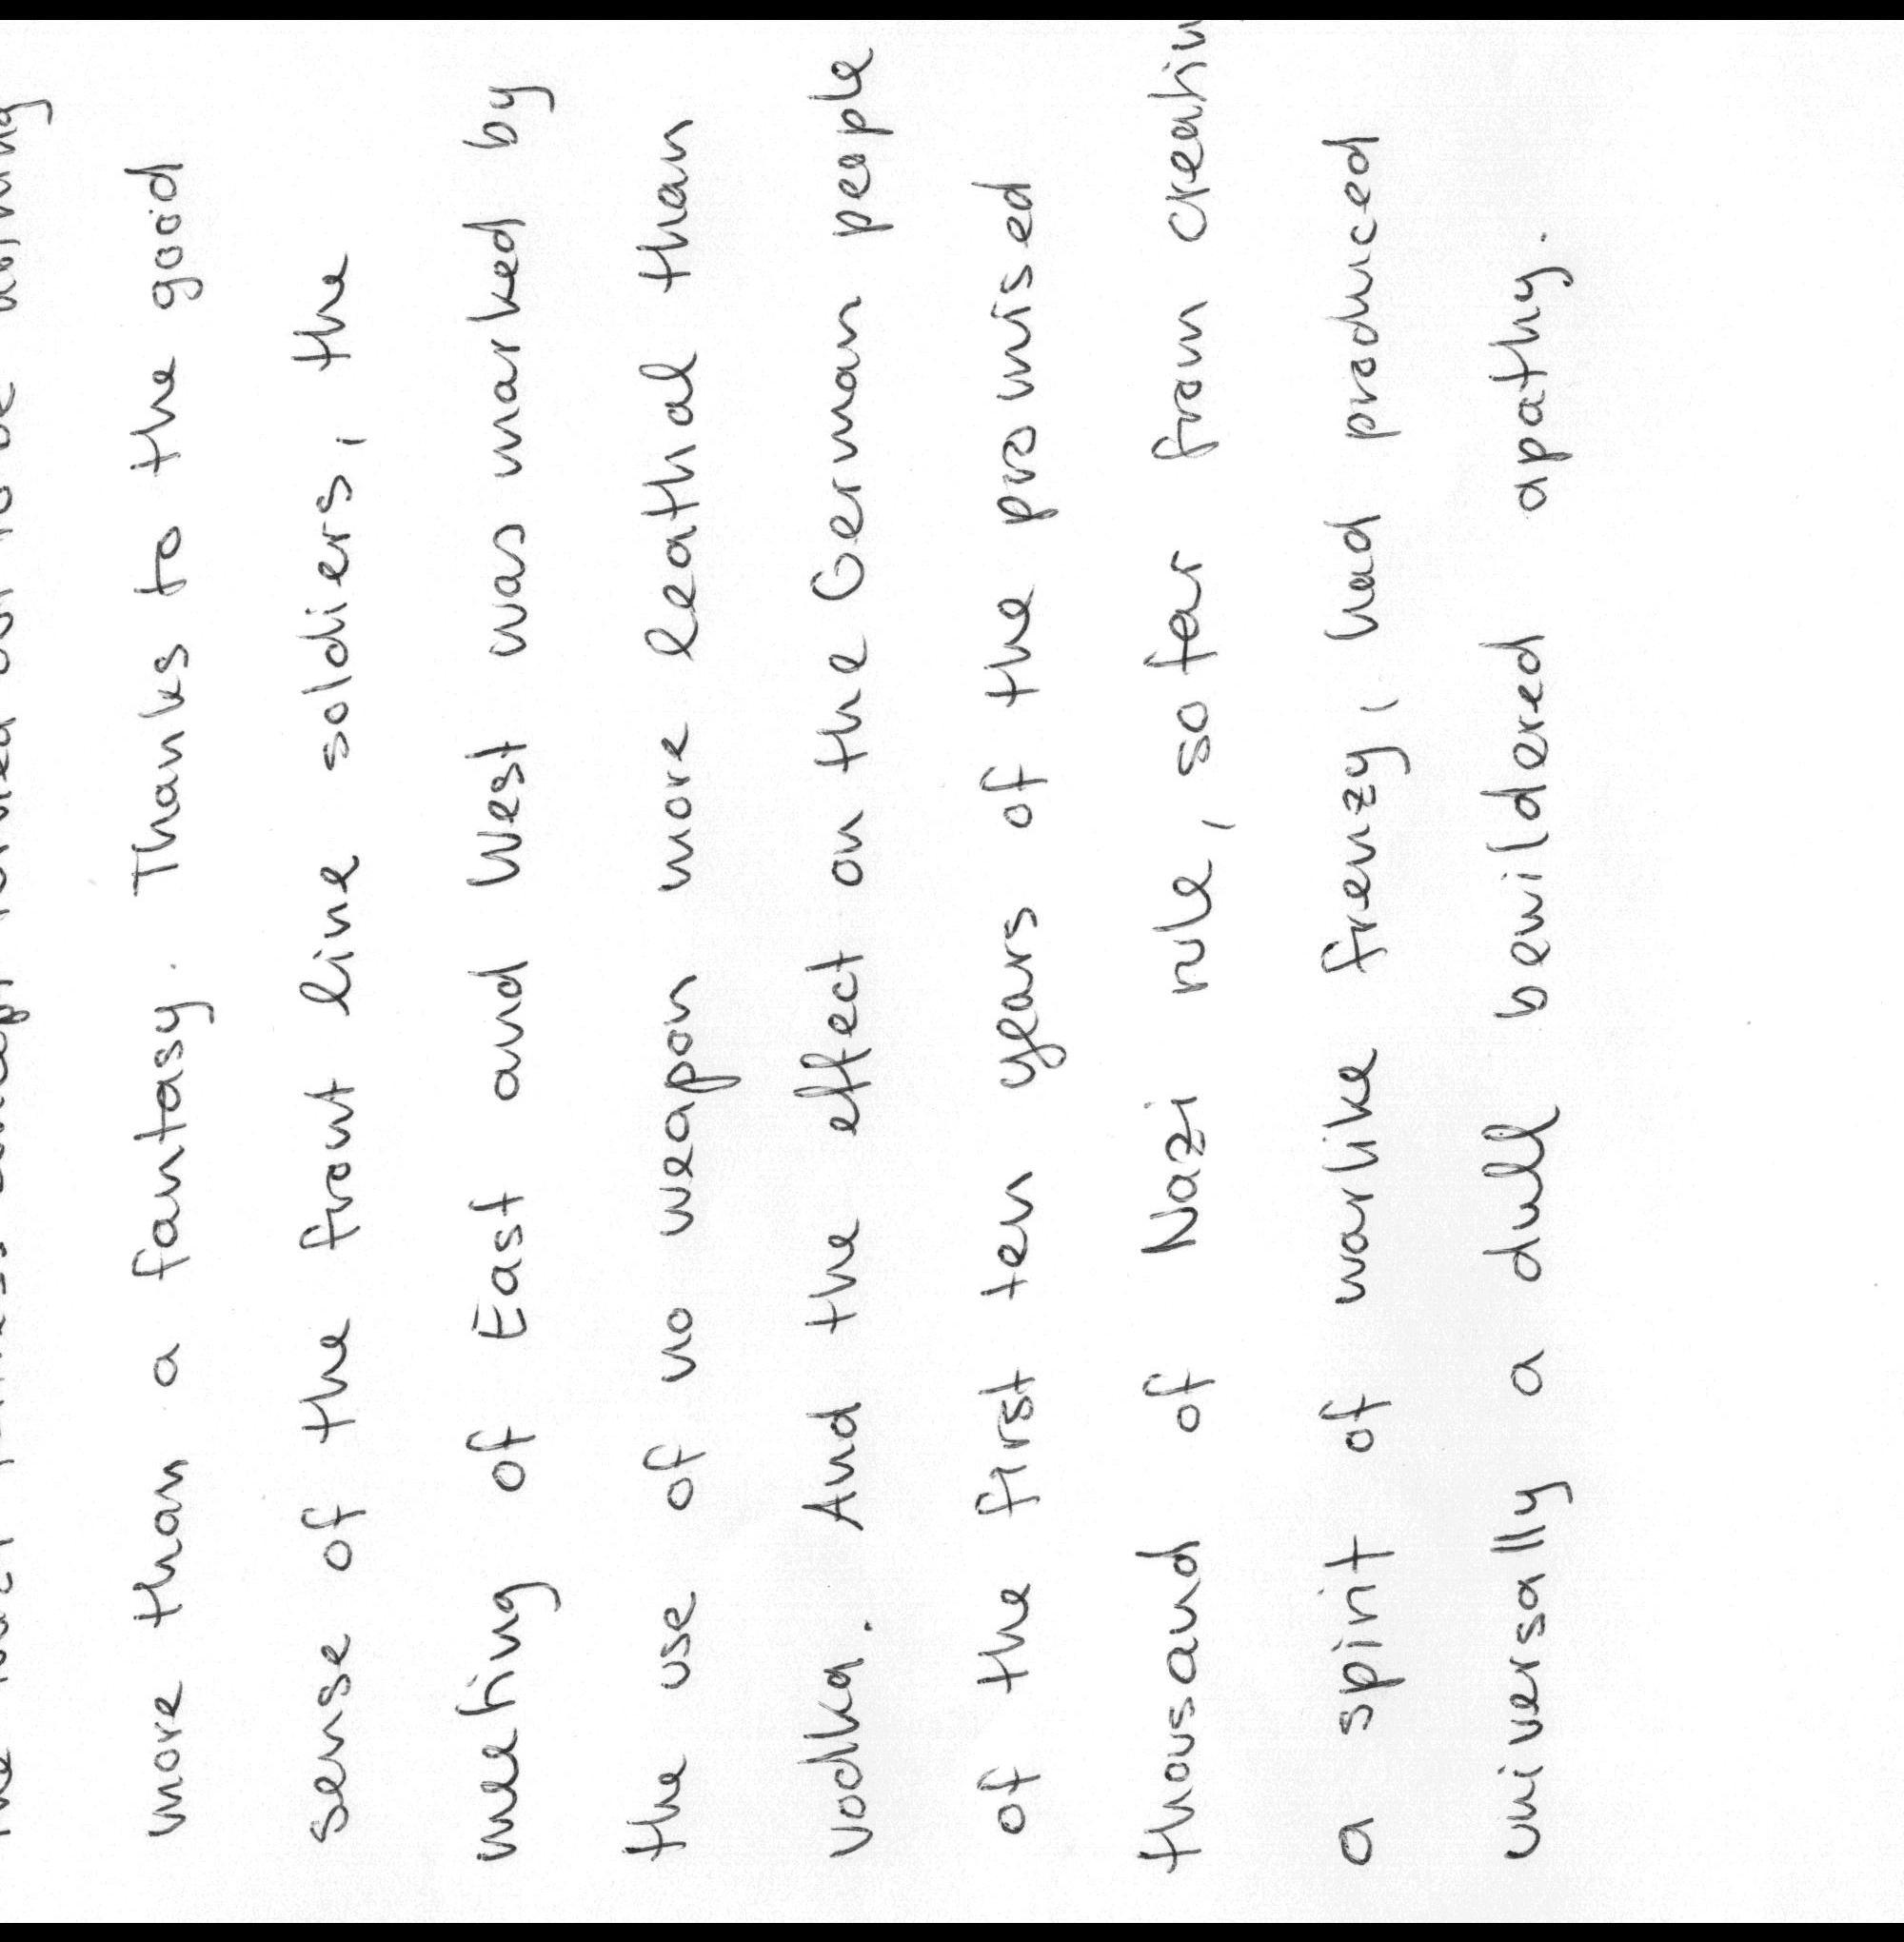 more than a fantasy. Thanks to the good
sense of the front line soldiers, the
meeting of East and West was marked by
the use of no weapon more leathal than
vodka. And the effect on the German people
of the first ten years of the promised
thousand of Nazi rule, so far from creatin
a spirit of warlike frenzy, had produced
universally a dull bewildered apathy.